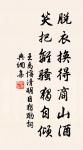 脫衣換得商山酒
笑把離騷獨自傾
王禹偁清明日獨酌詞
典網集